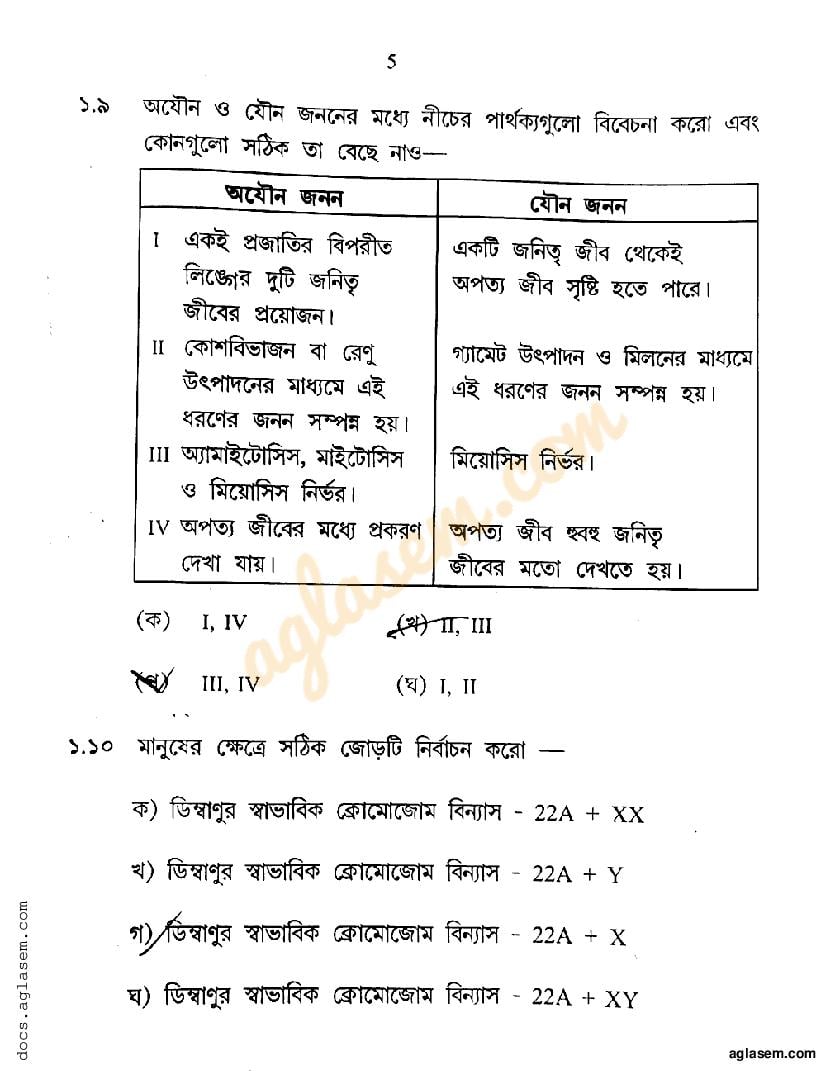 5
১.৯ অযৌন ও যৌন জননের মধ্যে নীচের পার্থক্যগুলো বিবেচনা করো এবং
কোনগুলো সঠিক তা বেছে নাও—
অযৌন জনন যৌন জনন
I একই প্রজাতির বিপরীত একটি জনিতৃ জীব থেকেই
লিঙ্গের দুটি জনিতৃ অপত্য জীব সৃষ্টি হতে পারে।
জীবের প্রয়োজন।
II কোশবিভাজন বা রেণু গ্যামেট উৎপাদন ও মিলনের মাধ্যমে
উৎপাদনের মাধ্যমে এই এই ধরণের জনন সম্পন্ন হয়।
ধরণের জনন সম্পন্ন হয়।
III অ্যামাইটোসিস, মাইটোসিস মিয়োসিস নির্ভর।
ও মিয়োসিস নির্ভর।
IV অপত্য জীবের মধ্যে প্রকরণ অপত্য জীব হুবহু জনিতৃ
দেখা যায়। জীবের মতো দেখতে হয়।
(ক) I, IV (খ) II, III
III, IV (ঘ) I, II
১.১০ মানুষের ক্ষেত্রে সঠিক জোড়টি নির্বাচন করো —
ক) ডিম্বাণুর স্বাভাবিক ক্রোমোজোম বিন্যাস - 22A + XX
খ) ডিম্বাণুর স্বাভাবিক ক্রোমোজোম বিন্যাস - 22A + Y
গ) ডিম্বাণুর স্বাভাবিক ক্রোমোজোম বিন্যাস - 22A + X
ঘ) ডিম্বাণুর স্বাভাবিক ক্রোমোজোম বিন্যাস - 22A + XY
aglasem.com
docs.aglasem.com
aglasem.com